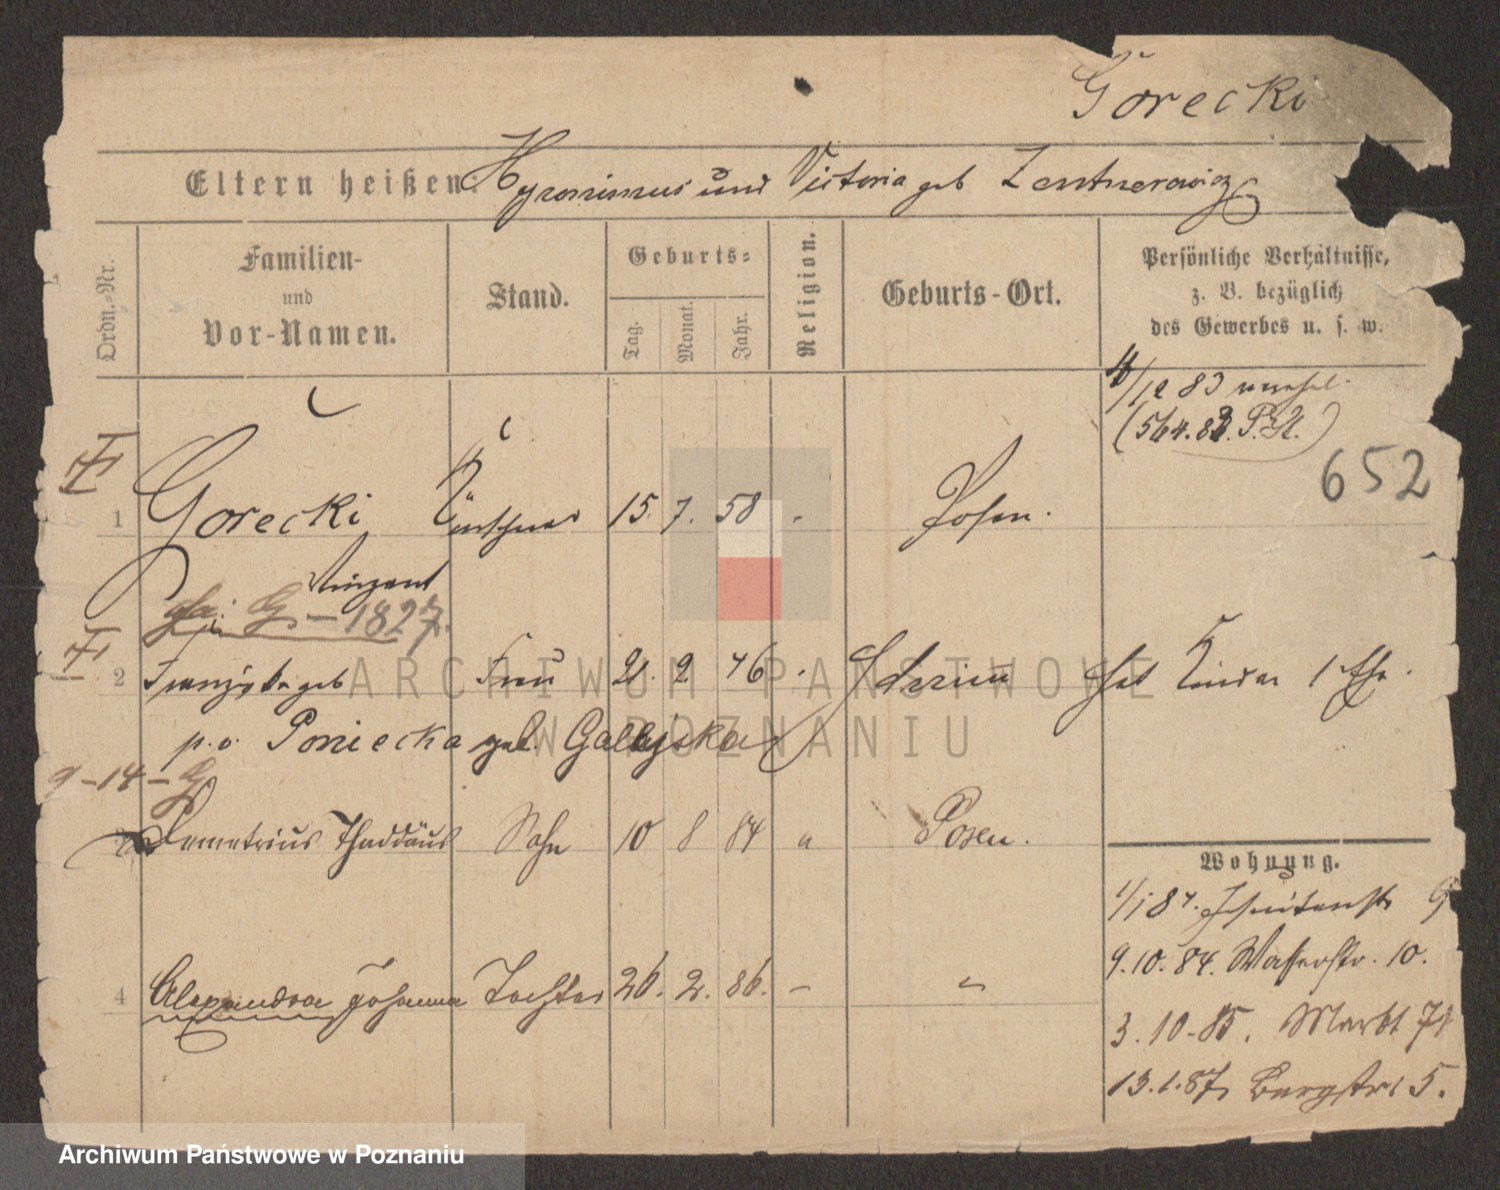 Gorecki
Eltern heißen Hyronimus und Victoria geb Zentnerowicz
Ordn.-Nr.
Familien-
und
Vor-Namen.
Stand.
Geburts-
Tag.
Monat.
Jahr.
Religion.
Geburts-Ort.
Persönliche Verhältnisse,
z. B. bezüglich
des Gewerbes u. s. w.
4/12 83
(564.83. P. )
652
1 Gorecki Kürschner 15. 7. 58 - Posen.
Vinzent
G - 1827.
2 Franziska geb Frau 21. 2. 46 Schrimm hat Kinder 1 Ehe.
p. v. Poniecka geb. Galbjska
9-14-G
3 Demetrius Thaddäus Sohn 10 8 84 " Posen.
Wohnung.
1/1 84. Jesuitenstr 9
9.10.84. Wasserstr. 10.
4 Alexandra Johanna Tochter 26. 2. 86. - "
3.10.85. Markt 71
13.1.87, Bergstr 5.
ARCHIWUM PAŃSTWOWE
W POZNANIU
Archiwum Państwowe w Poznaniu